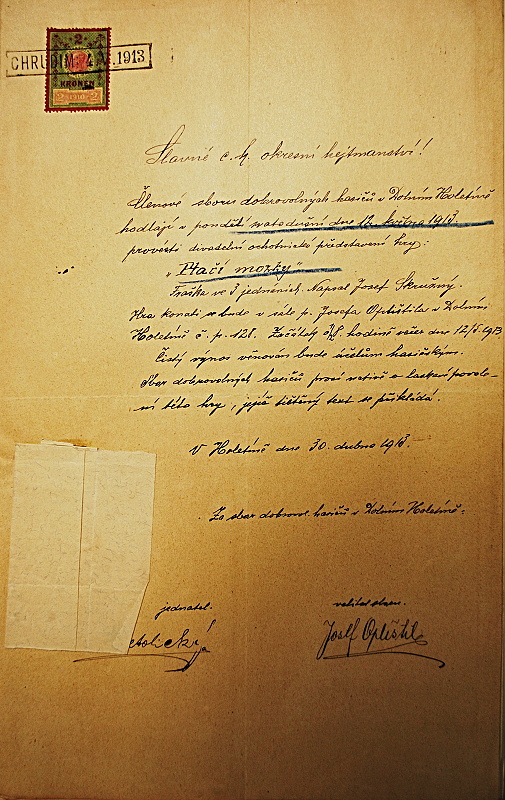 2
CHRUDIM 4 1913
KRONEN
2 1910 2
Slavné c. k. okresní hejtmanství!
Členové sboru dobrovolných hasičů v Dolním Holetíně
hodlají v pondělí svatodušní dne 12. května 1913
provésti divadelní ochotnické představení hry:
"Ptačí mozky"
Fraška ve 3 jednáních. Napsal Josef Skružný.
Hra konati se bude v sále p. Josefa Opletila v Dolním
Holetíně č. p. 128. Začátek hodině večer dne 12/5. 1913
Čistý výnos věnován bude účelům hasičským.
Sbor dobrovolných hasičů prosí uctivě o laskavé povole-
ní této hry, jejíž tištěný text se přikládá.
V Holetíně dne 30. dubna 1913.
Za sbor dobrovol. hasičů v Dolním Holetíně.
jednatel.
velitel sboru.
Josef Opletil